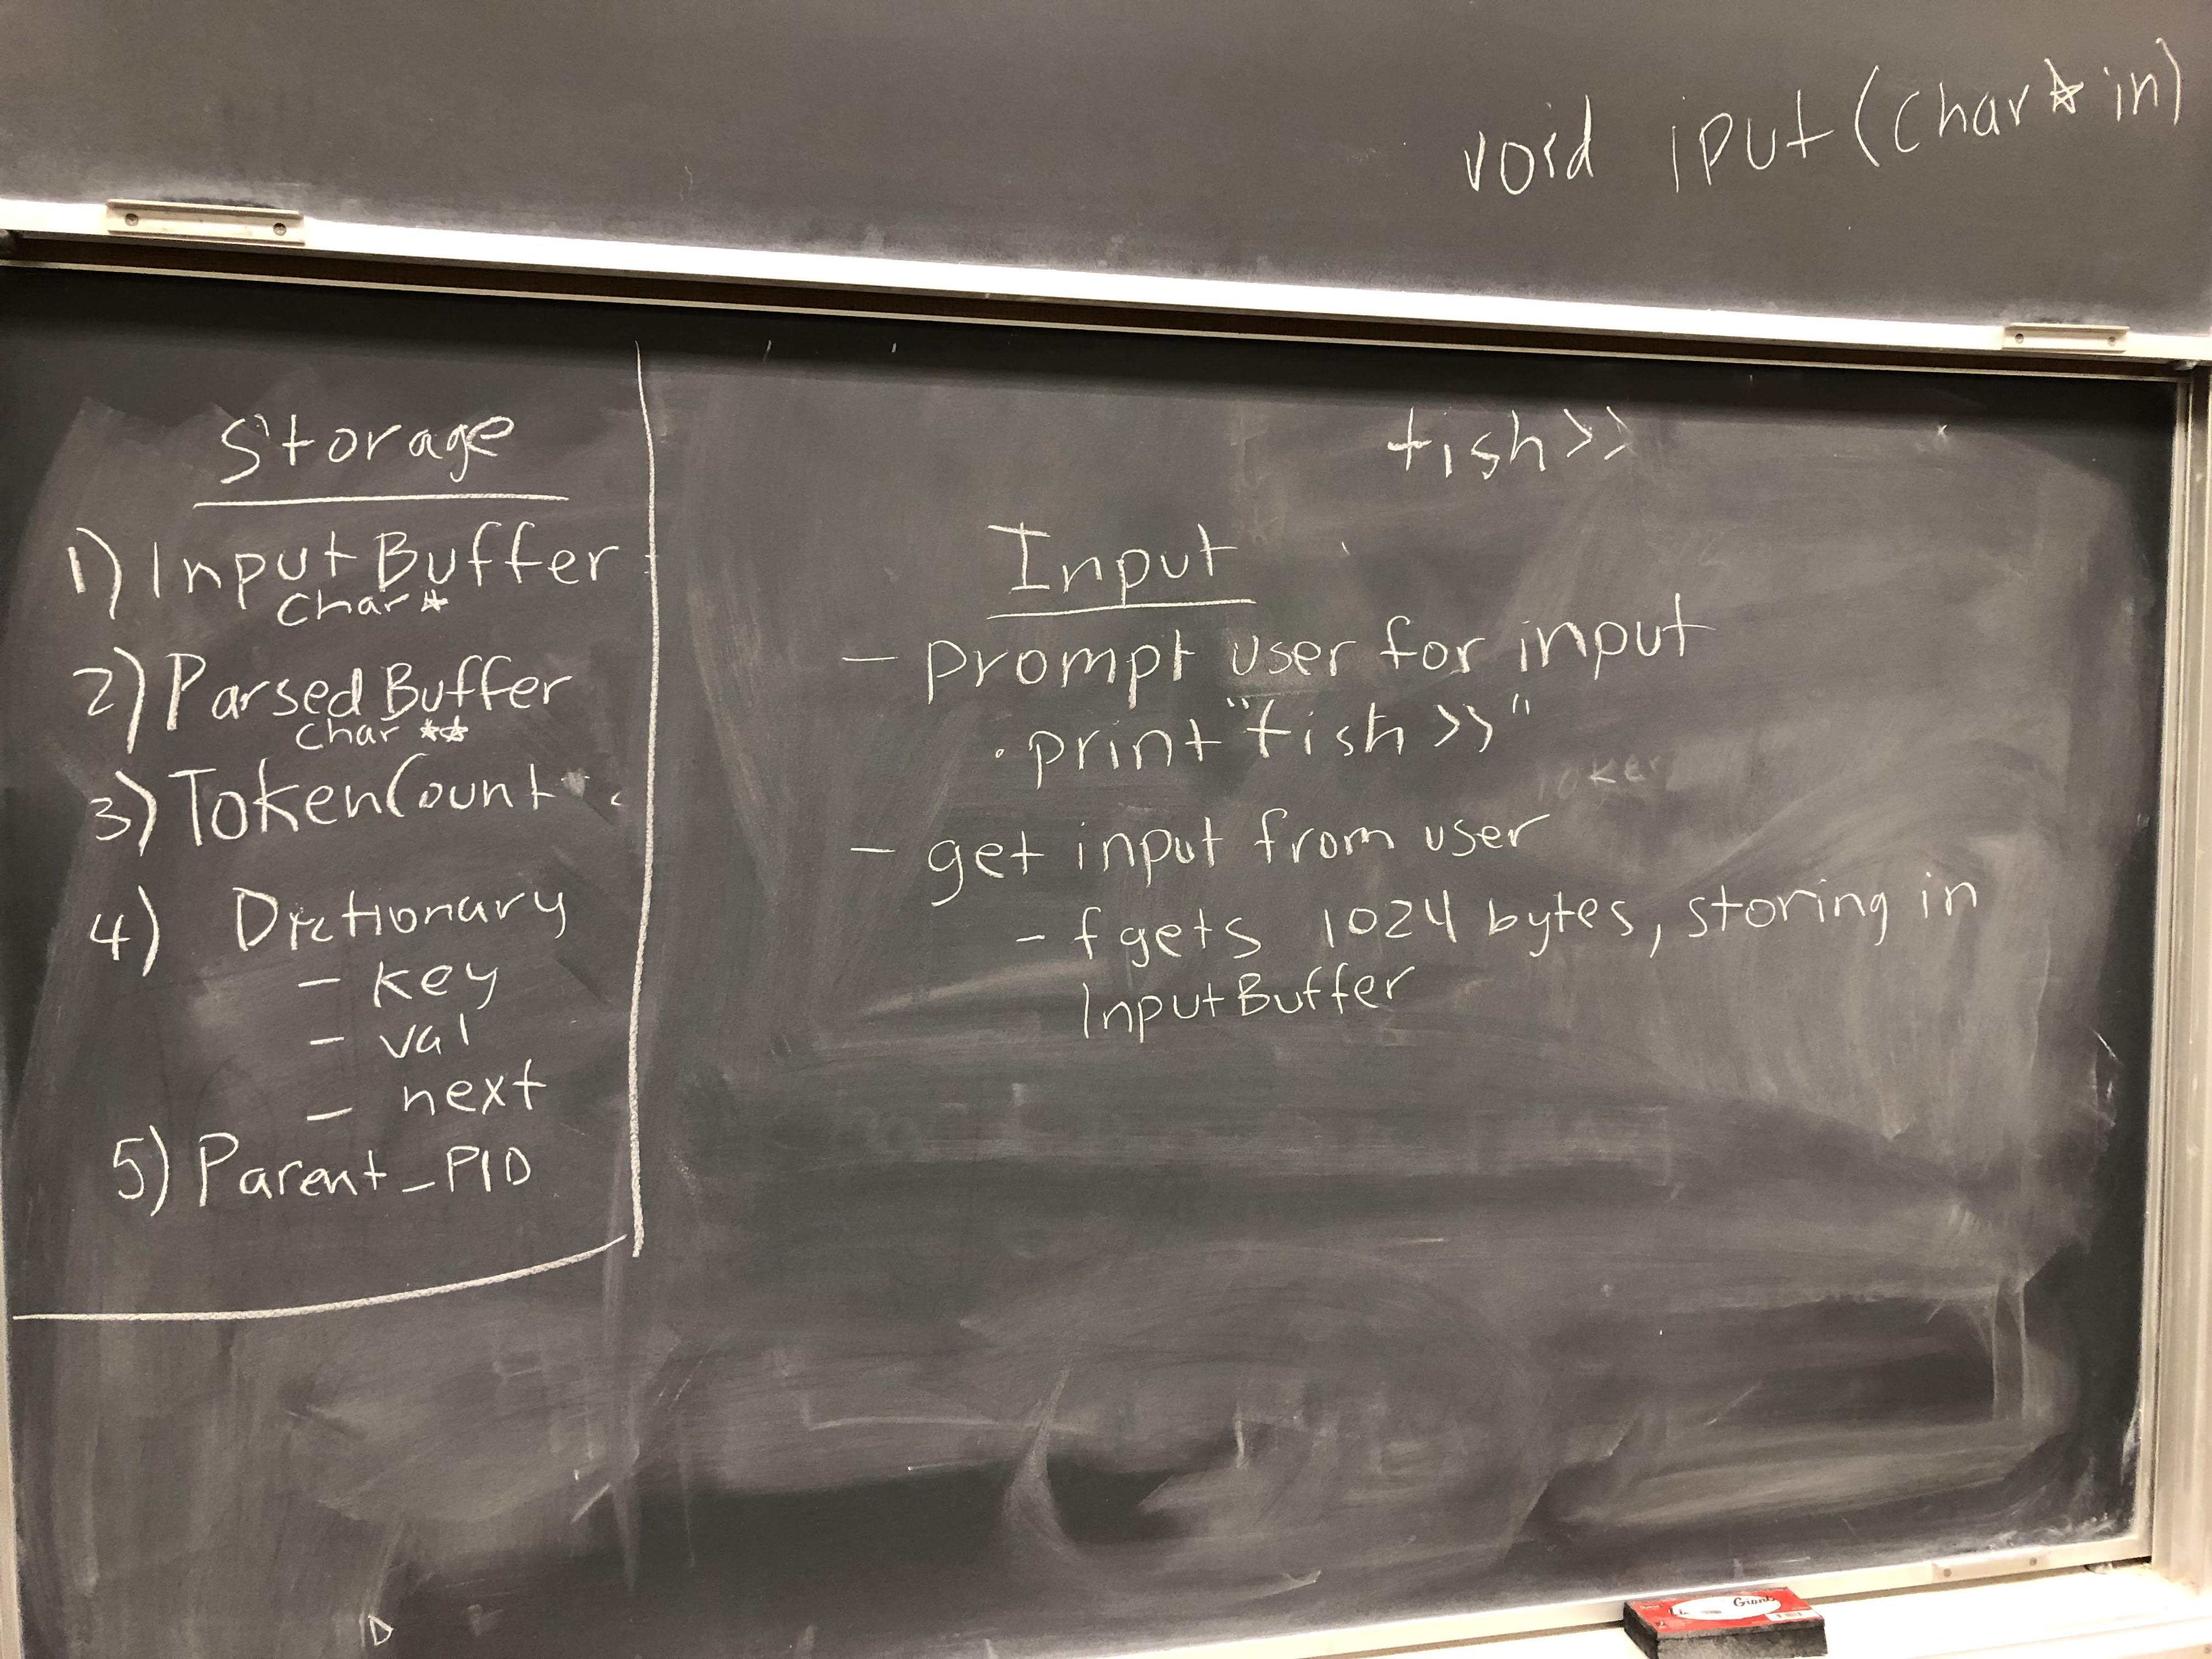 void iput(char* in)
Storage
1) InputBuffer
char *
2) ParsedBuffer
char **
3) TokenCount
4) Dictionary
- key
- val
- next
5) Parent_PID
tish>>
Input
- prompt user for input
· print "tish >>"
- get input from user
- fgets 1024 bytes, storing in
InputBuffer
Giant